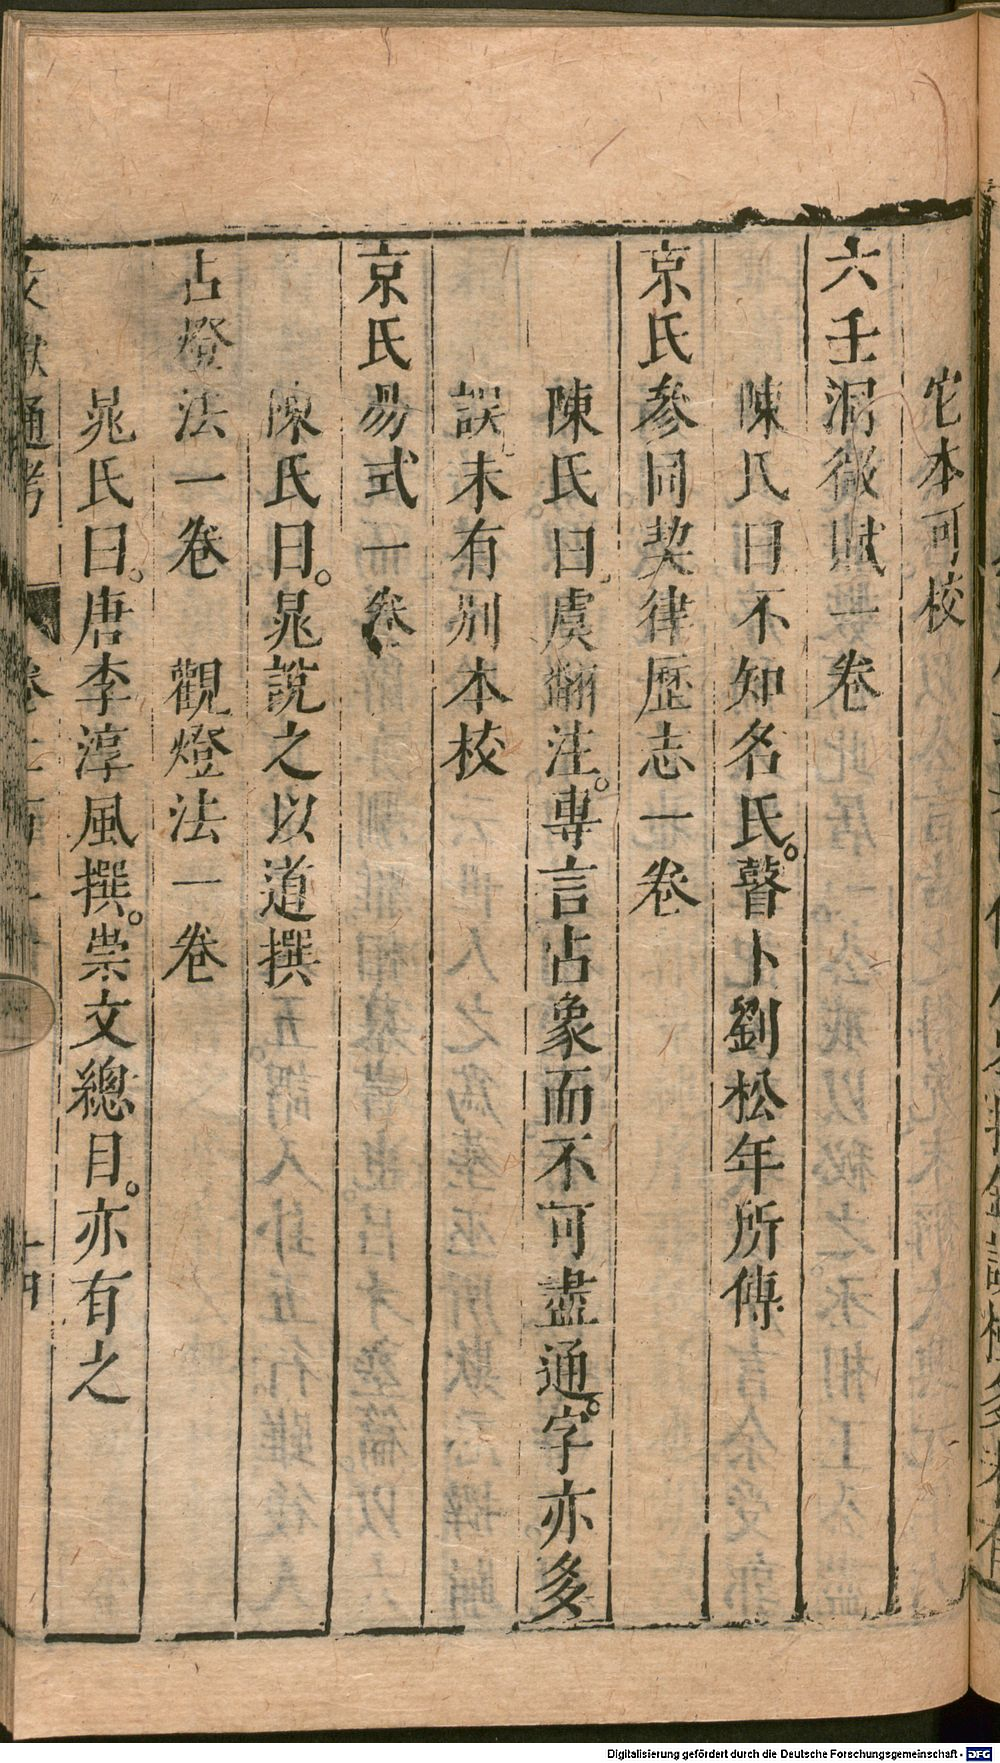 它本可校
六壬洞微賦一卷
陳氏曰不知名氏。瞽卜劉松年所傳
京氏參同契律歷志一卷
陳氏曰。虞翻注。專言占象而不可盡通。字亦多
誤。未有別本校
京氏易式一卷
陳氏曰。晁說之以道撰
占燈法一卷 觀燈法一卷
晁氏曰。唐李淳風撰。崇文總目。亦有之
文獻通考 卷二百二十 十四
Digitalisierung gefördert durch die Deutsche Forschungsgemeinschaft - DFG